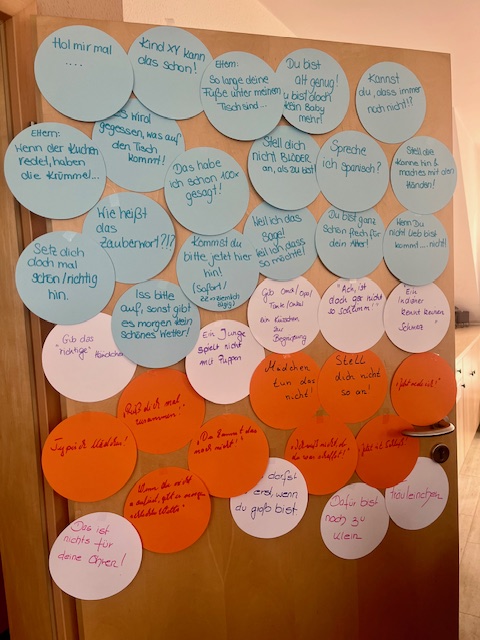 Hol mir mal
....
Kind XY kann
das schon!
Eltern:
So lange deine
Füße unter meinem
Tisch sind...
Du bist
alt genug!
u bist doch
kein Baby
mehr!
Kannst
du, dass immer
noch nicht!?
Eltern:
Wenn der Kuchen
redet, haben
die Krümel...
Es wird
gegessen, was auf
den Tisch
kommt!
Das habe
ich schon 100x
gesagt!
Stell dich
nicht BLÖDER
an, als du bist!
Spreche
ich Spanisch?
Stell die
Kanne hin &
mach es mit
Händen!
Wie heißt
das
Zauberwort?!?
Setz dich
doch mal
schön/richtig
hin.
Kommst du
bitte jetzt hier
hin!
(sofort/
Weil ich das
sage!
Weil ich dass
so möchte!
Du bist ganz
schön frech für
dein Alter!
Wenn Du
nicht lieb bist
kommt ..... nicht!
Iss bitte
auf, sonst gibt
es morgen kein
schönes Wetter!
"Gib das
"richtige" Händchen
Ein Junge
spielt nicht
mit Puppen
Gib Oma/Opa/
Tante/Onkel
ein Küsschen
zur
Begrüßung
"Ach, ist
doch gar nicht
so schlimm!"
"Ein
Indianer
kennt keinen
Schmerz"
Mädchen
tun das
nicht!
Stell
dich nicht
so an!
"Reiß dich mal
zusammen!"
Typisch Mädchen!
"Du kannst das
noch nicht!"
Wenn du nicht
aufisst, gibt es morgen
schlechtes Wetter"
darfst
erst, wenn
du groß bist
Dafür bist
noch zu
klein
Fräuleinchen
Das ist
nichts für
deine Ohren!